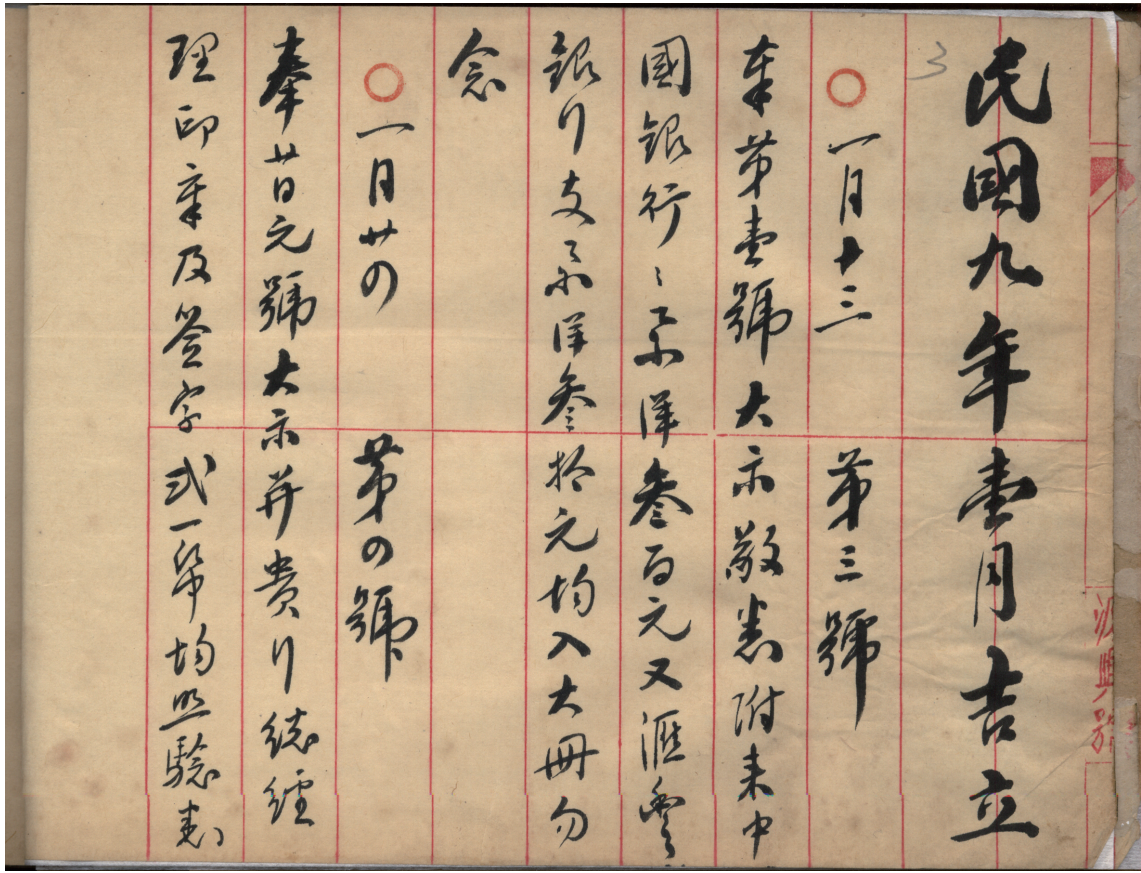 民國九年壹月吉立
3
○一月十三 第三號
奉第壹號大示敬悉附来中
國銀行〻票洋叁百元又滙豐
銀行支票洋叁拾元均入大冊勿
念
○一月廿四 第四號
奉昔日元號大示并貴行総經
理印章及簽字式一帋均照驗悉